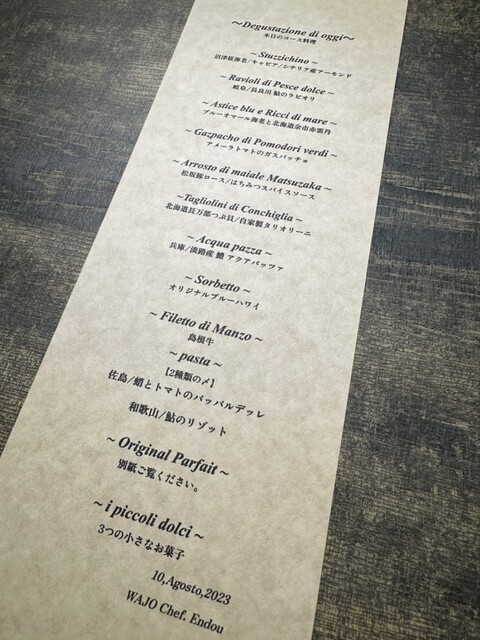 ～Degustazione di oggi～
本日のコース料理
~ Stuzzichino ~
沼津桜海老/キャビア/シチリア産アーモンド
~ Ravioli di Pesce dolce ~
岐阜/長良川 鮎のラビオリ
~ Astice blu e Ricci di mare ~
ブルーオマール海老と北海道余市赤雲丹
~ Gazpacho di Pomodori verdi ~
アメーラトマトのガスパッチョ
~ Arrosto di maiale Matsuzaka ~
松坂豚ロース/はちみつスパイスソース
~Tagliolini di Conchiglia ~
北海道長万部つぶ貝/自家製タリオリーニ
~ Acqua pazza ~
兵庫/淡路産 鱧 アクアパッツァ
~ Sorbetto ~
オリジナルブルーハワイ
~ Filetto di Manzo ~
島根牛
~ pasta ~
【2種類の〆】
佐島/蛸とトマトのパッパルデッレ
和歌山/鮎のリゾット
~ Original Parfait ~
別紙ご覧ください。
~ i piccoli dolci ~
3つの小さなお菓子
10,Agosto,2023
WAJO Chef. Endou